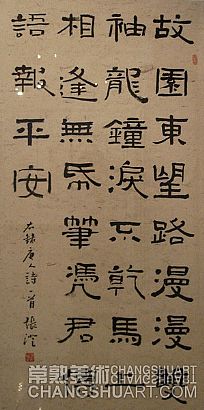 故園東望路漫漫雙
袖龍鐘淚不乾馬上
相逢無帋筆憑君傳
語報平安
唐人詩一首張
常熟美術
CHANGSHUART.COM